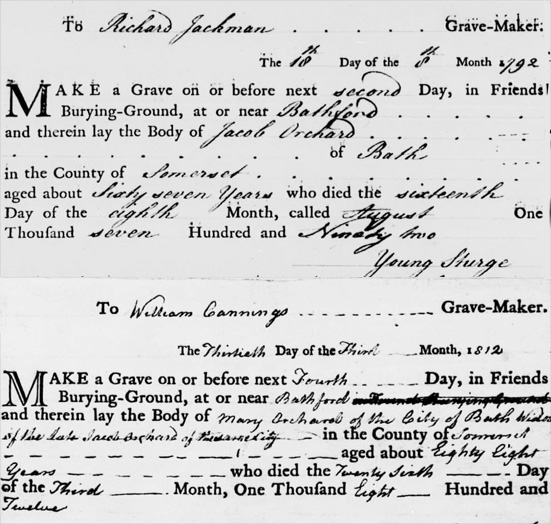 To Richard Jackman . . . . . Grave-Maker.
The 18th Day of the 8th Month 1792
MAKE a Grave on or before next second Day, in Friends
Burying-Ground, at or near Bathford . . . . . .
and therein lay the Body of Jacob Orchard . . . . .
. . . . . . . . . . . . of Bath
in the County of Somerset . . . . . . . . . .
aged about Sixty seven Years who died the sixteenth
Day of the eighth Month, called August One
Thouſand seven Hundred and Ninety two
Young Sturge
To William Cannings Grave-Maker.
The Thirtieth Day of the Third Month, 1812
MAKE a Grave on or before next Fourth Day, in Friends
Burying-Ground, at or near Bathford
and therein lay the Body of Mary Orchard of the City of Bath Widow
of the late Jacob Orchard of the same City in the County of Somerset
aged about Eighty Eight
Years who died the Twenty Sixth Day
of the Third Month, One Thouſand Eight Hundred and
Twelve